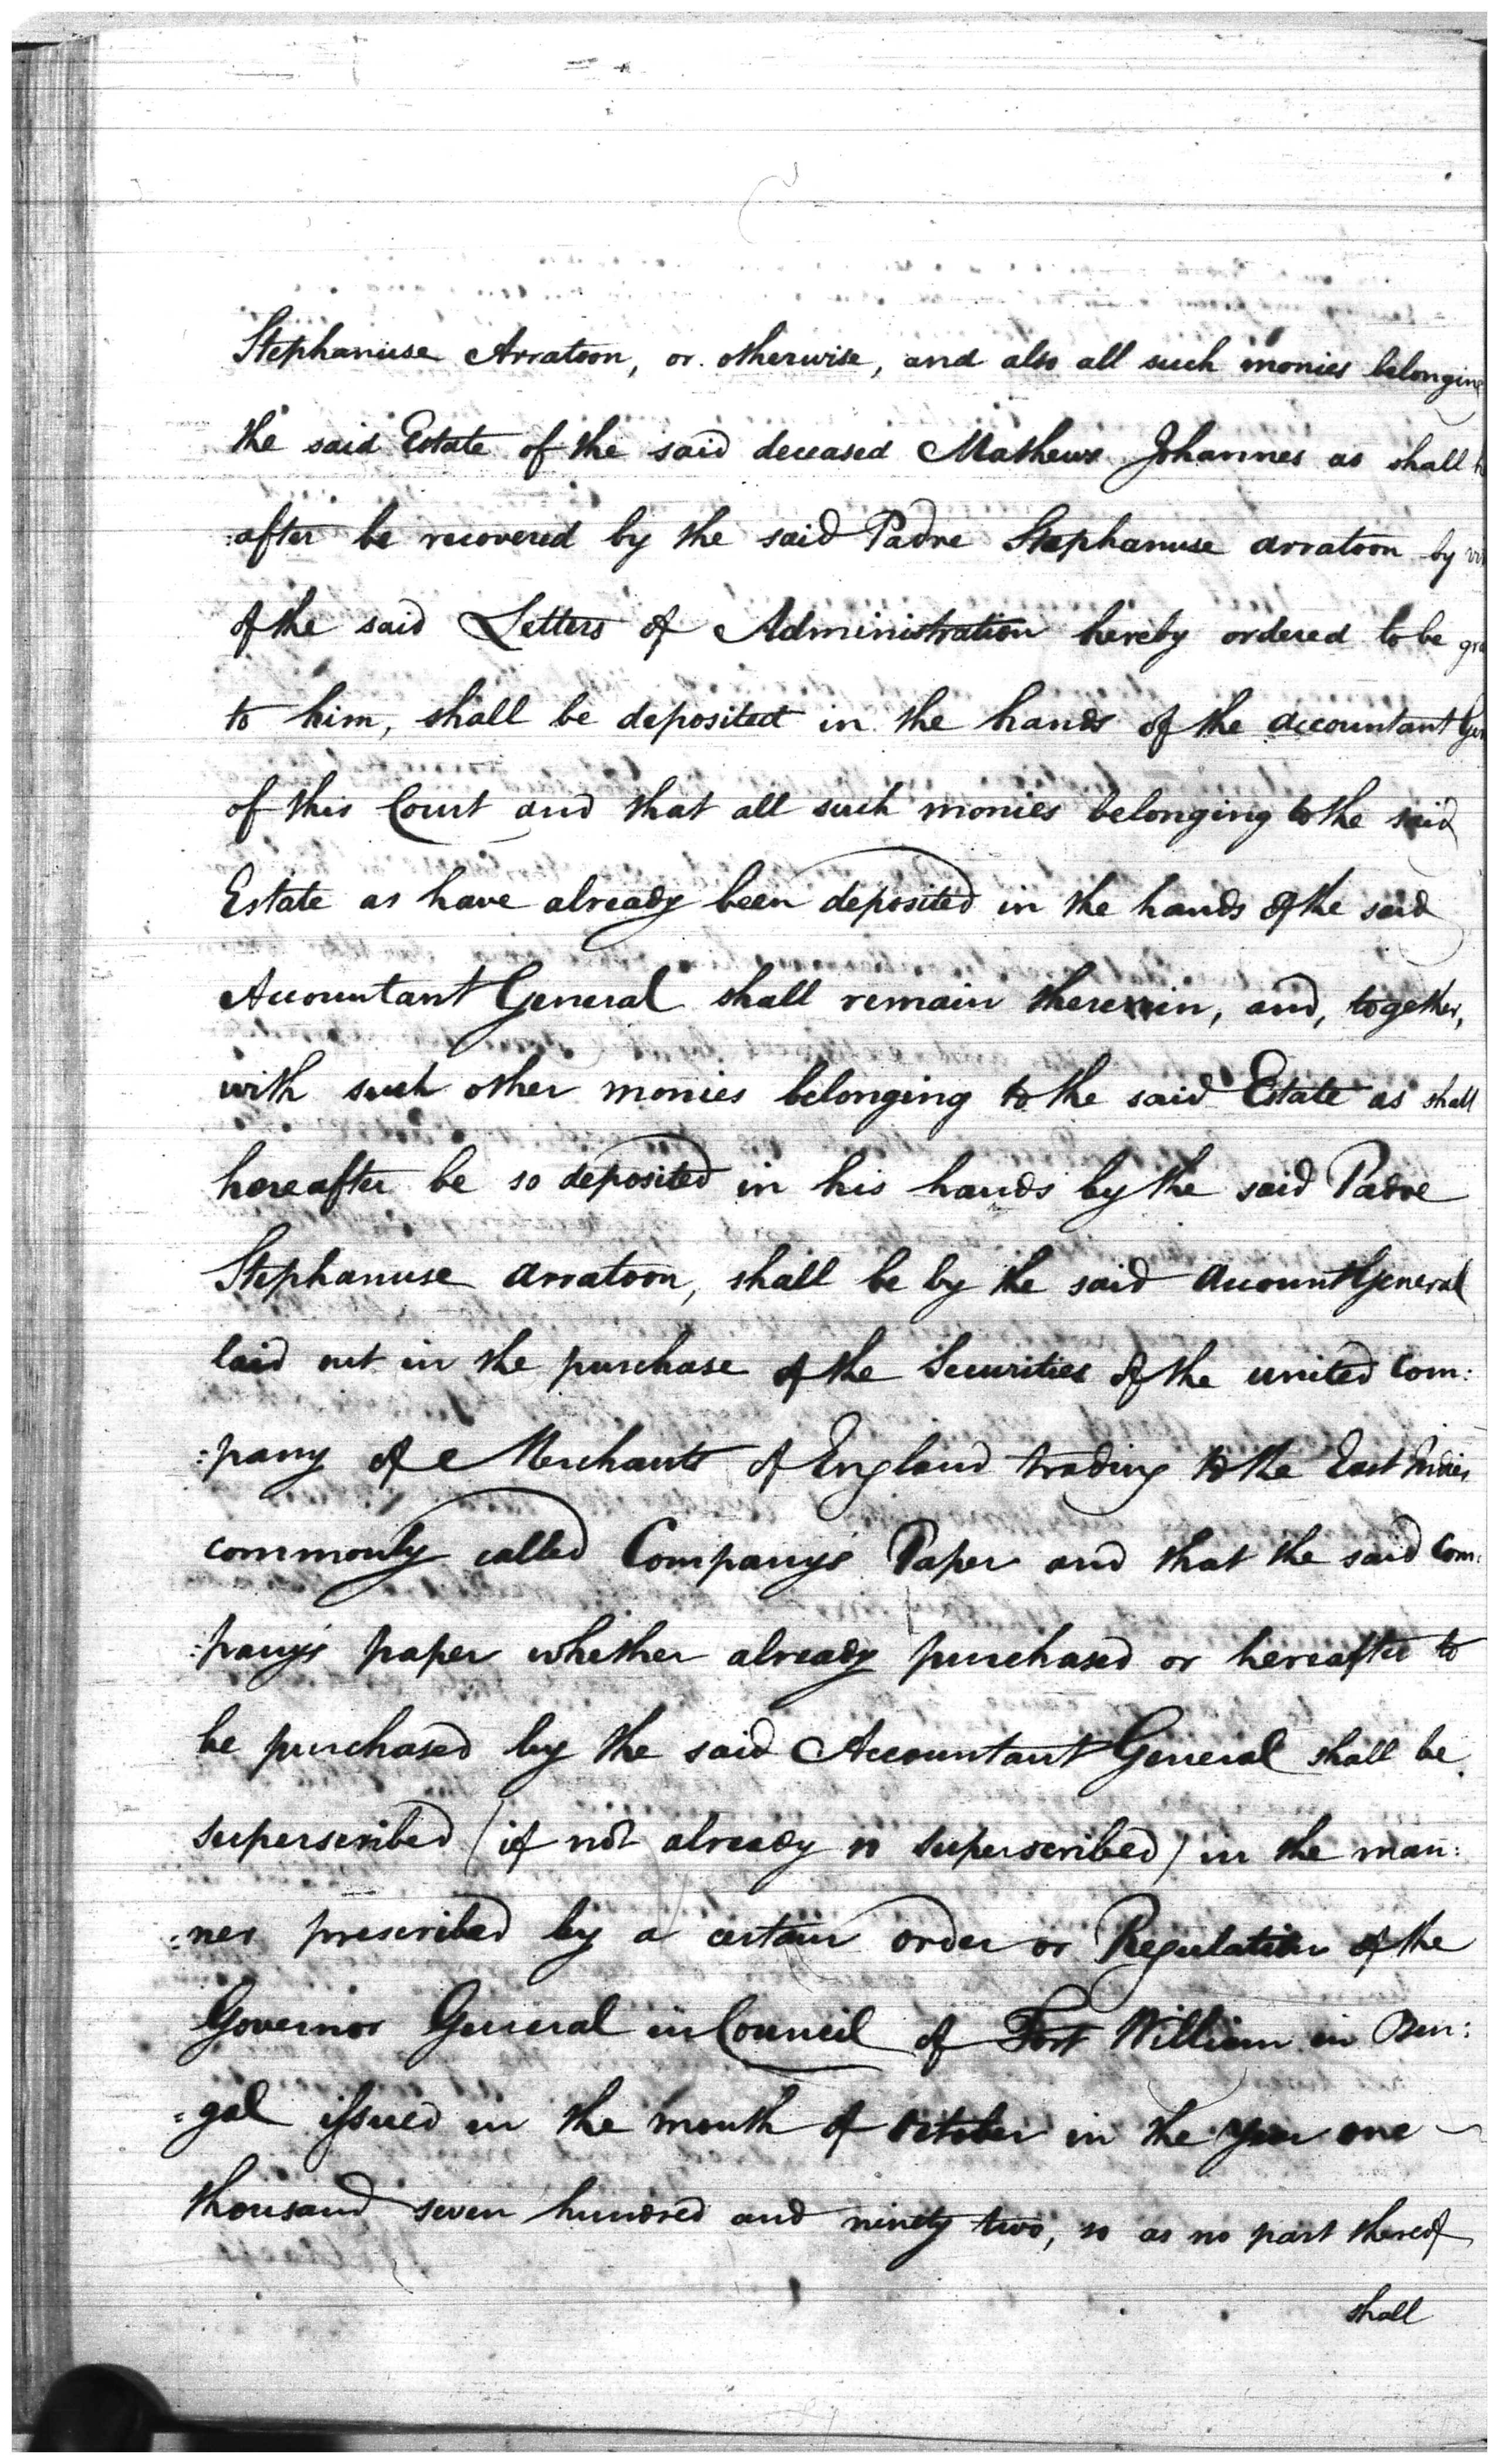 Stephanuse Arratoon, or otherwise, and also all such monies belonging
the said Estate of the said deceased Mathews Johannes as shall
:after be recovered by the said Padre Stephanuse arratoon by
of the said Letters of Administration hereby ordered to be
to him, shall be deposited in the hands of the accountant
of this Court and that all such monies belonging to the said
Estate as have already been deposited in the hands of the said
Accountant General shall remain therein, and, together,
with such other monies belonging to the said Estate as shall
hereafter be so deposited in his hands by the said Padre
Stephanuse arratoon, shall be by the said account General
laid out in the purchase of the Securities of the united Com:
:pany of Merchants of England trading to the East Indies
commonly called Company's Paper and that the said Com:
:pany's paper whether already purchased or hereafter to
be purchased by the said Accountant General shall be
superscribed (if not already so superscribed) in the man:
:ner prescribed by a certain order or Regulation of the
Governor General in Council of Fort William in Ben:
:gal issued in the month of October in the year one
thousand seven hundred and ninety two, so as no part thereof
shall